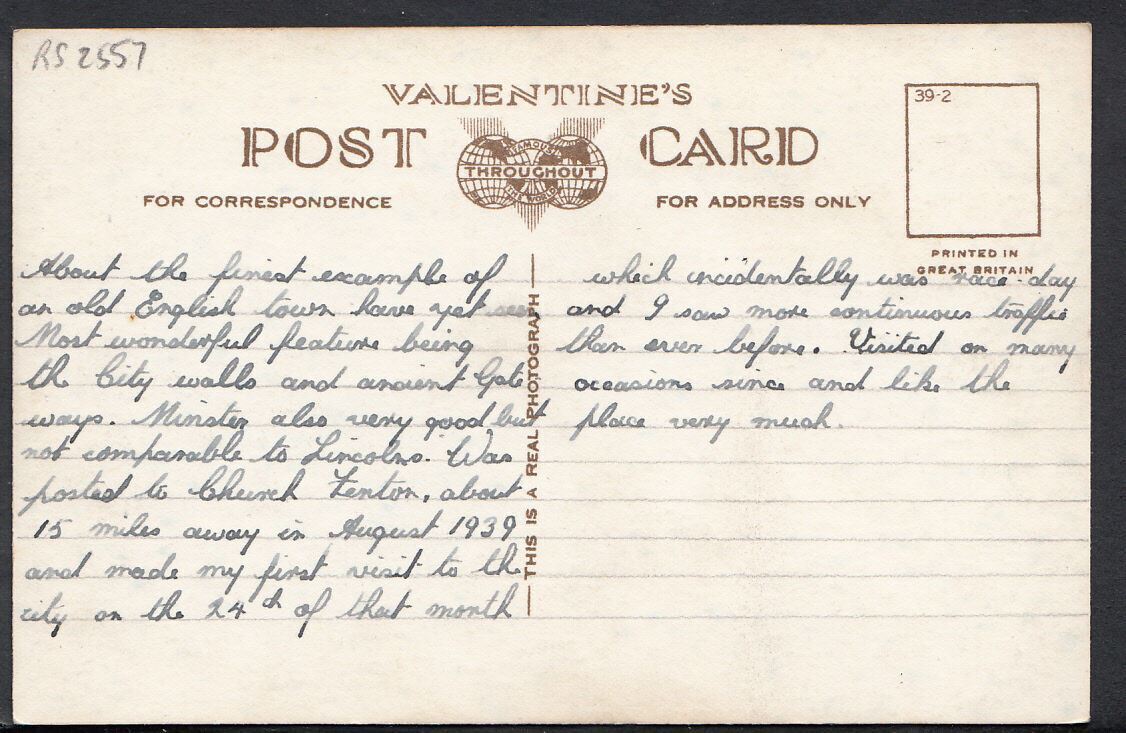 RS 2557
VALENTINE'S
POST CARD
FAMOUS
THROUGHOUT
THE WORLD
FOR CORRESPONDENCE
FOR ADDRESS ONLY
39-2
PRINTED IN
GREAT BRITAIN
About the finest example of
an old English town have yet seen
Most wonderful feature being
the City walls and ancient Gate
ways. Minster also very good but
not comparable to Lincolns. Was
posted to Church Fenton, about
15 miles away in August 1939
and made my first visit to the
city on the 24th of that month
THIS IS A REAL PHOTOGRAPH
which incidentally was race-day
and I saw more continuous traffic
than ever before. Visited on many
occasions since and like the
place very much.